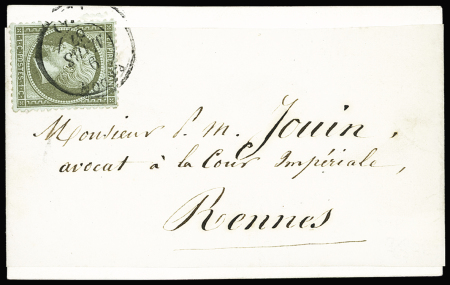 Monsieur P. M. Jouin,
avocat à la Cour Impériale,
Rennes